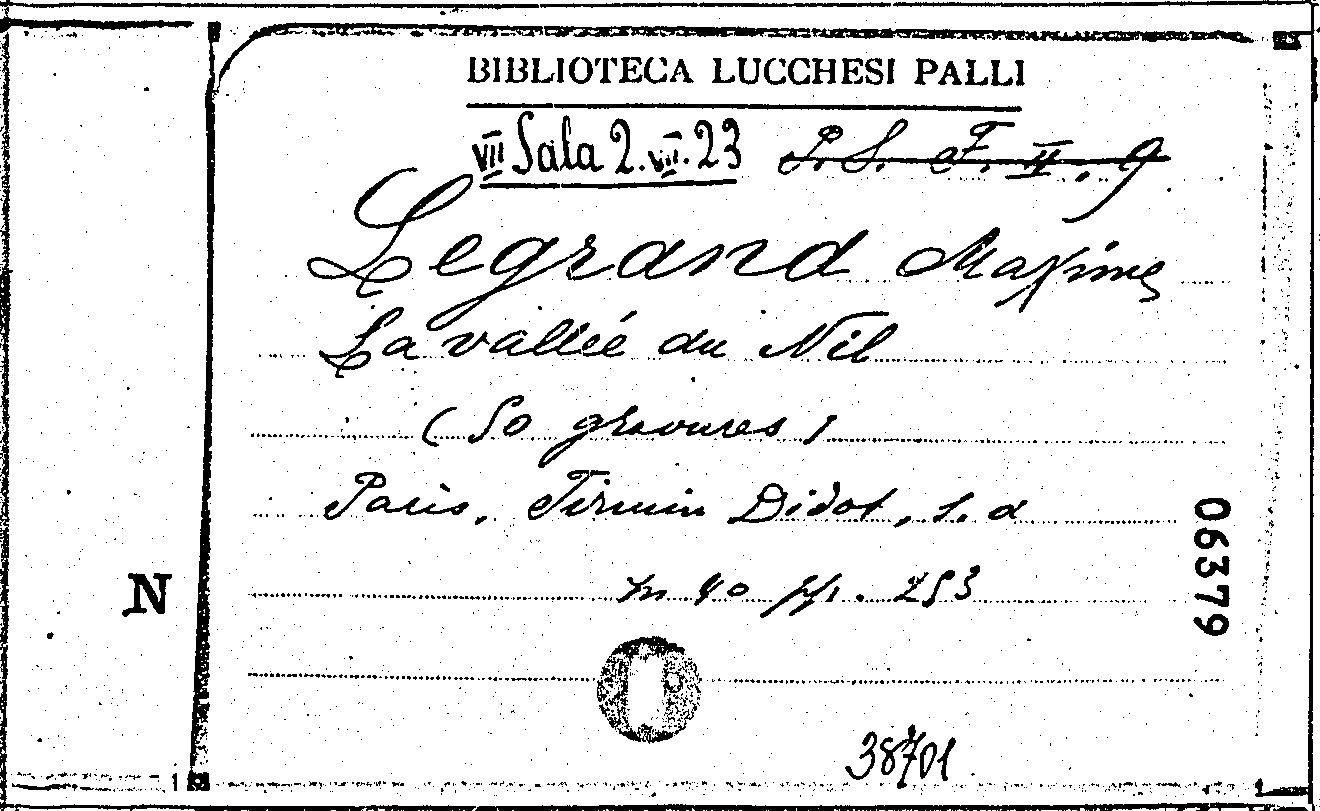 BIBLIOTECA LUCCHESI PALLI
VII Sala 2. VII. 23 P. S. F. II. 9
Legrand Maxime
La vallée du Nil
(50 gravures)
Paris, Firmin Didot, s. d
in 40 pp. 253
06379
N
38701